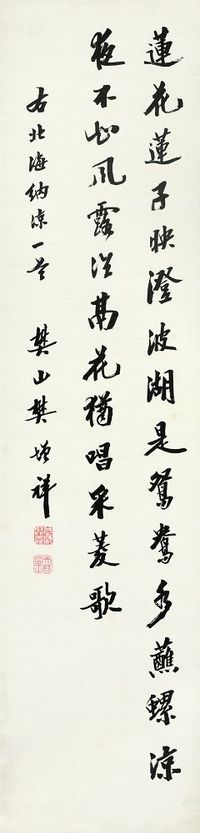 蓮花蓮子映澄波湖是鴛鴦蘸螺涼
夜不知風露花猶唱采菱歌
右北海納涼一首 樊山樊增祥